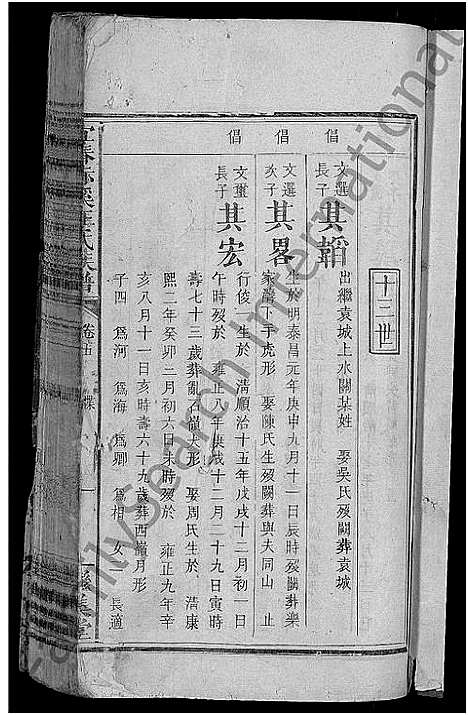 十三世
倡
文選
長子
其韜
出繼袁城上水關某姓 娶吳氏歿闕葬袁城
倡
文選
次子
其畧
生於明泰昌元年庚申九月十一日辰時歿闕葬欒
家蕩下手虎形 娶陳氏生歿闕葬與夫同山 止
倡
文璽
長子
其宏
行俊一生於 清順治十五年戊戌十二月初一日
午時歿於 雍正八年庚戌十二月二十九日寅時
壽七十三歲葬亂石嶺犬形 娶周氏生於 清康
熙二年癸卯二月初六日未時歿於 雍正九年辛
亥八月十一日亥時壽六十九歲葬西嶺月形
子四 爲河 爲海 爲卿 爲相 女一 長適
宜春
氏族譜
卷
FamilySearch International